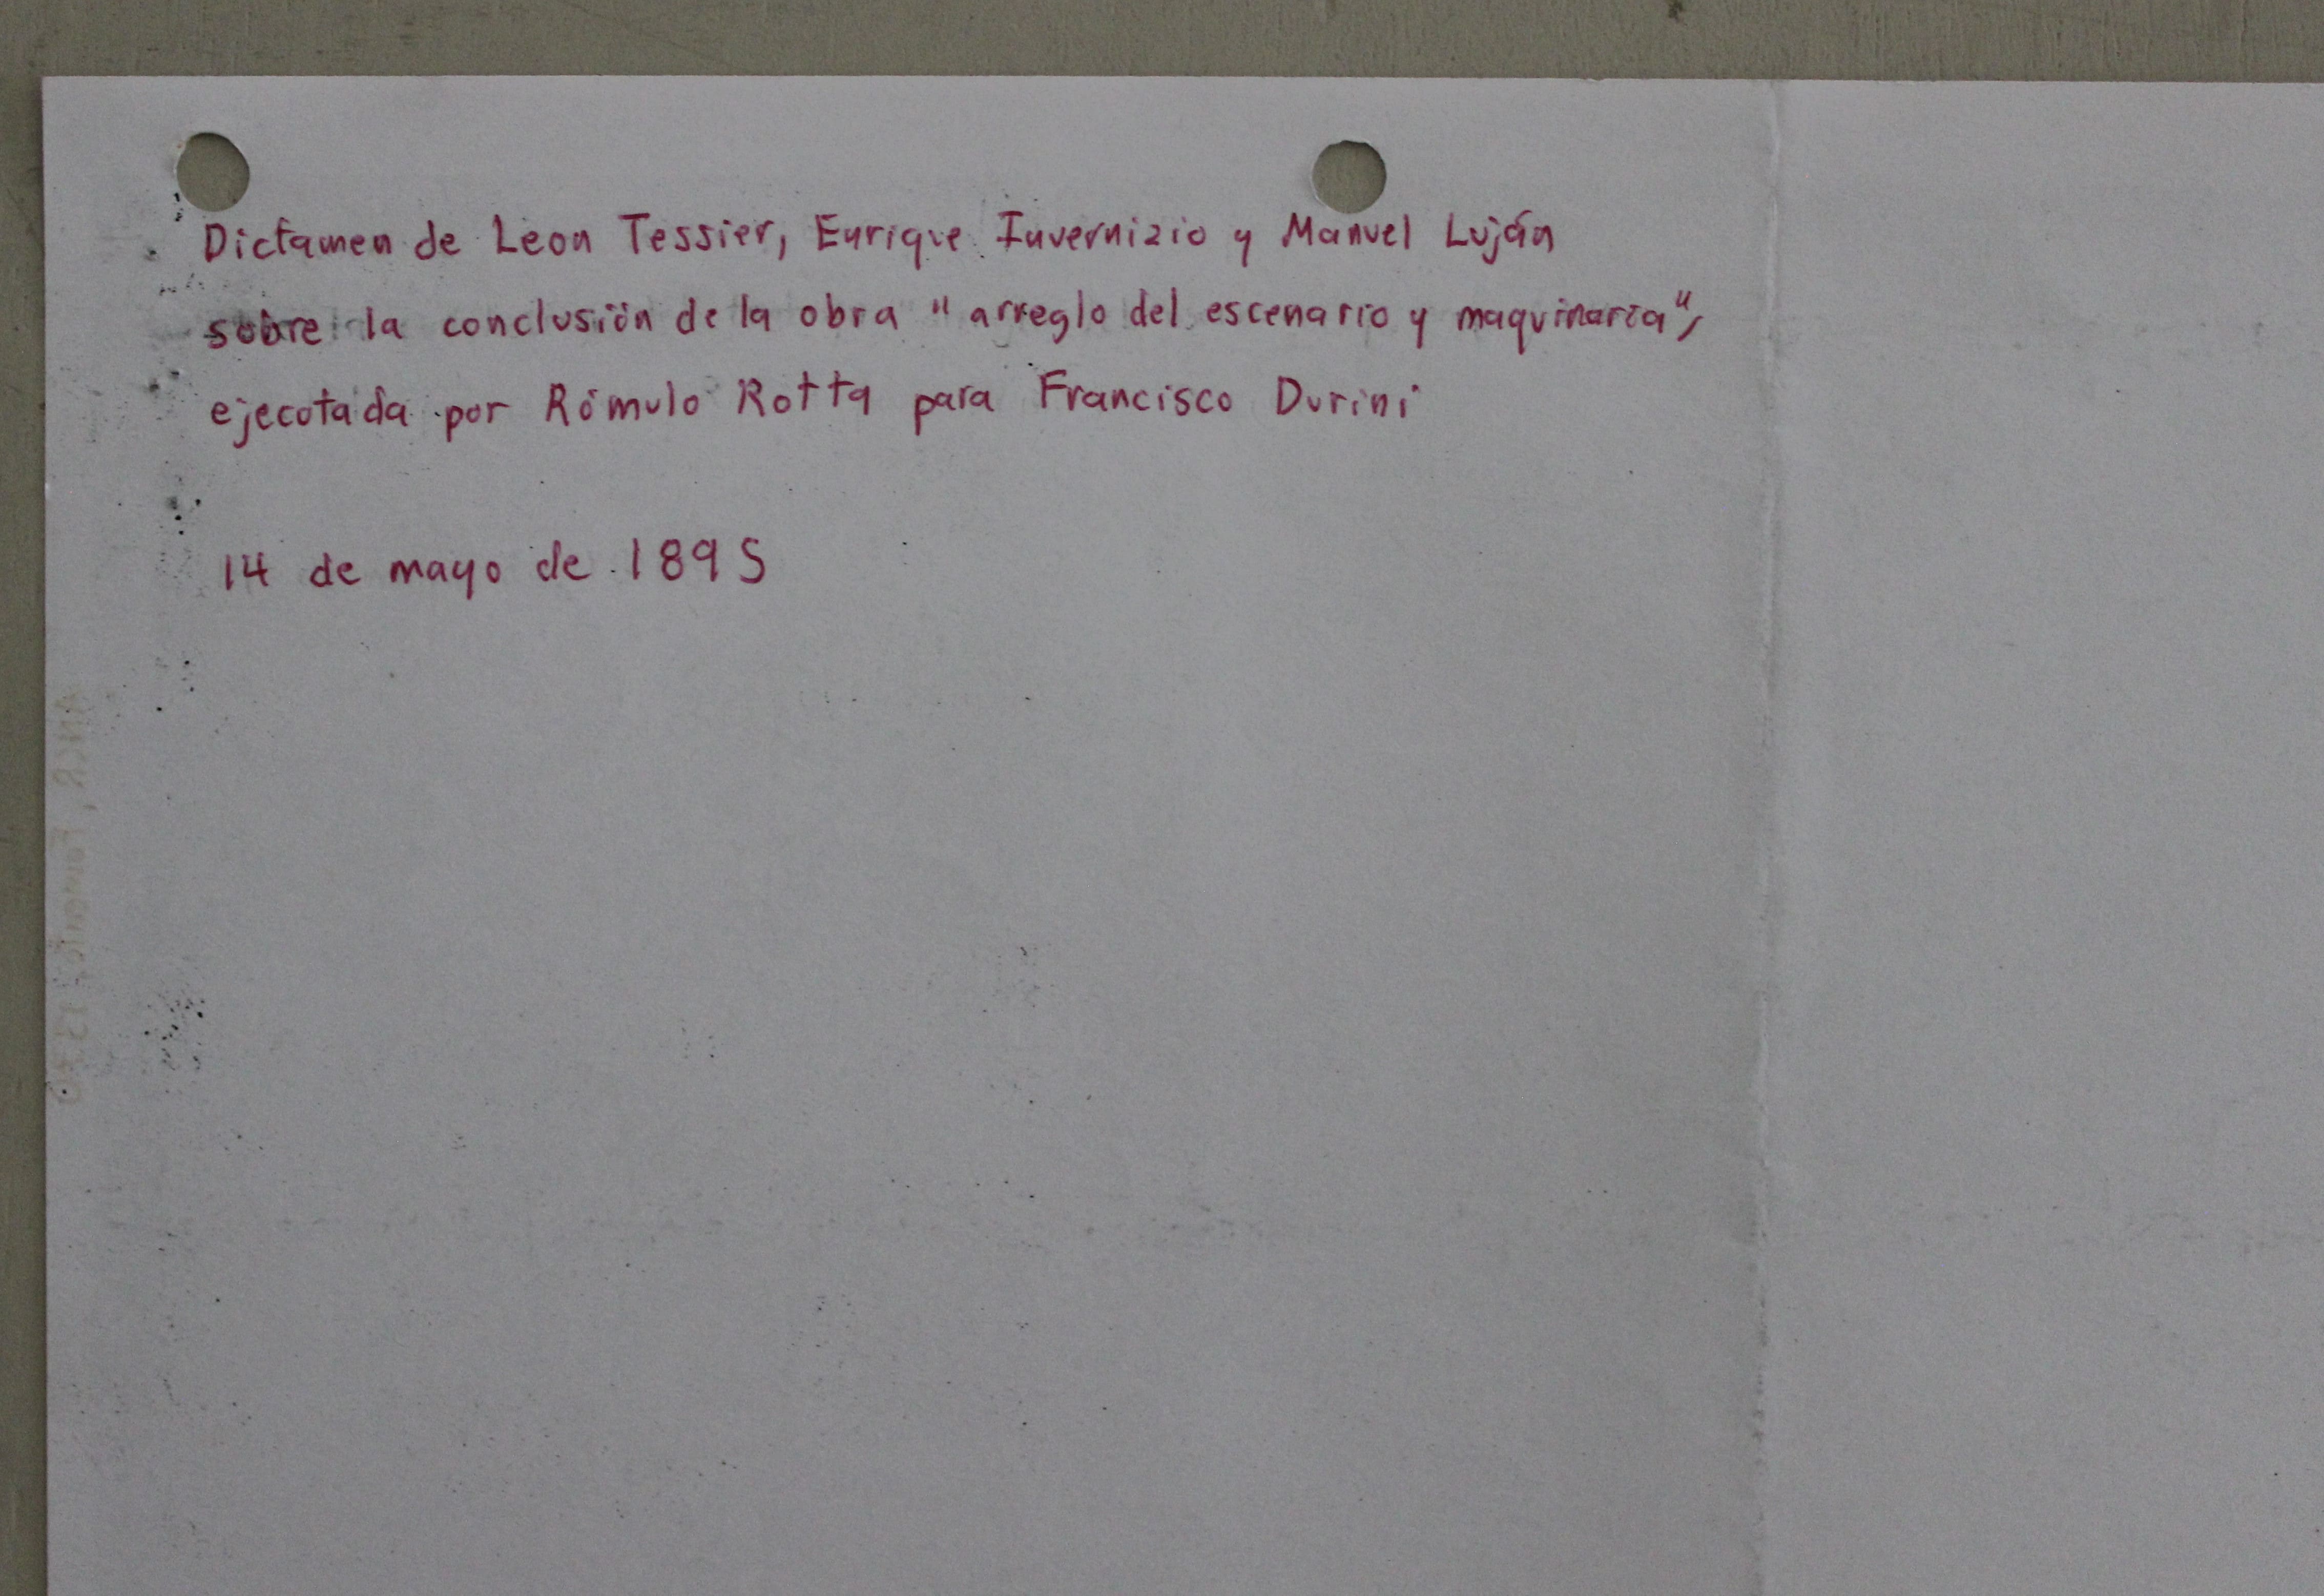 Dictamen de Leon Tessier, Enrique Invernizio y Manuel Luján
sobre la conclusión de la obra "arreglo del escenario y maquinaria",
ejecutada por Rómulo Rotta para Francisco Durini
14 de mayo de 1895